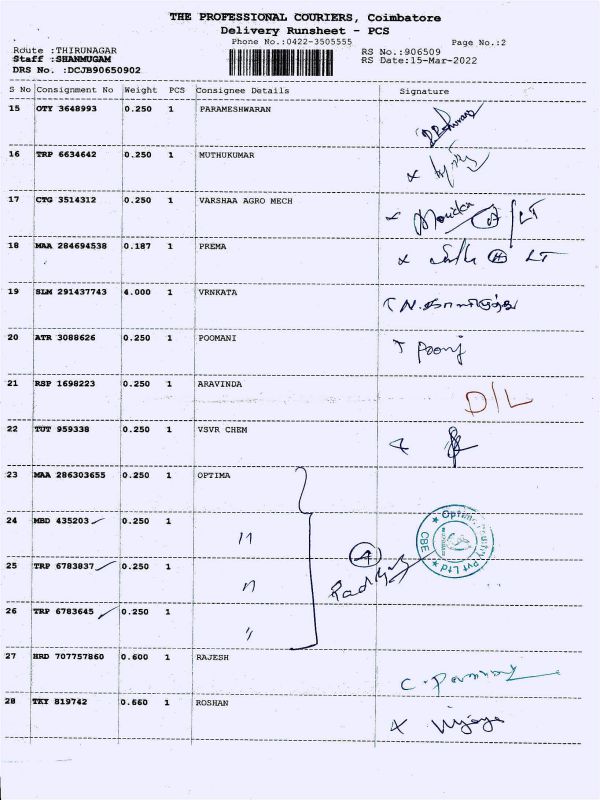 THE PROFESSIONAL COURIERS, Coimbatore
Delivery Runsheet - PCS
Phone No.:0422-3505555 Page No.:2
Route :THIRUNAGAR RS No.:906509
Staff :SHANMUGAM RS Date:15-Mar-2022
DRS No. :DCJB90650902
S No Consignment No Weight PCS Consignee Details Signature
15 OTY 3648993 0.250 1 PARAMESHWARAN
16 TRP 6634642 0.250 1 MUTHUKUMAR
17 CTG 3514312 0.250 1 VARSHAA AGRO MECH LT
18 MAA 284694538 0.187 1 PREMA LT
19 SLM 291437743 4.000 1 VRNKATA
20 ATR 3088626 0.250 1 POOMANI
21 RSP 1698223 0.250 1 ARAVINDA D/L
22 TUT 959338 0.250 1 VSVR CHEM
23 MAA 286303655 0.250 1 OPTIMA
24 MBD 435203 0.250 1 "
25 TRP 6783837 0.250 1 "
26 TRP 6783645 0.250 1 "
4
CBE Pvt Ltd
27 HRD 707757860 0.600 1 RAJESH
28 TKY 819742 0.660 1 ROSHAN Vijaya